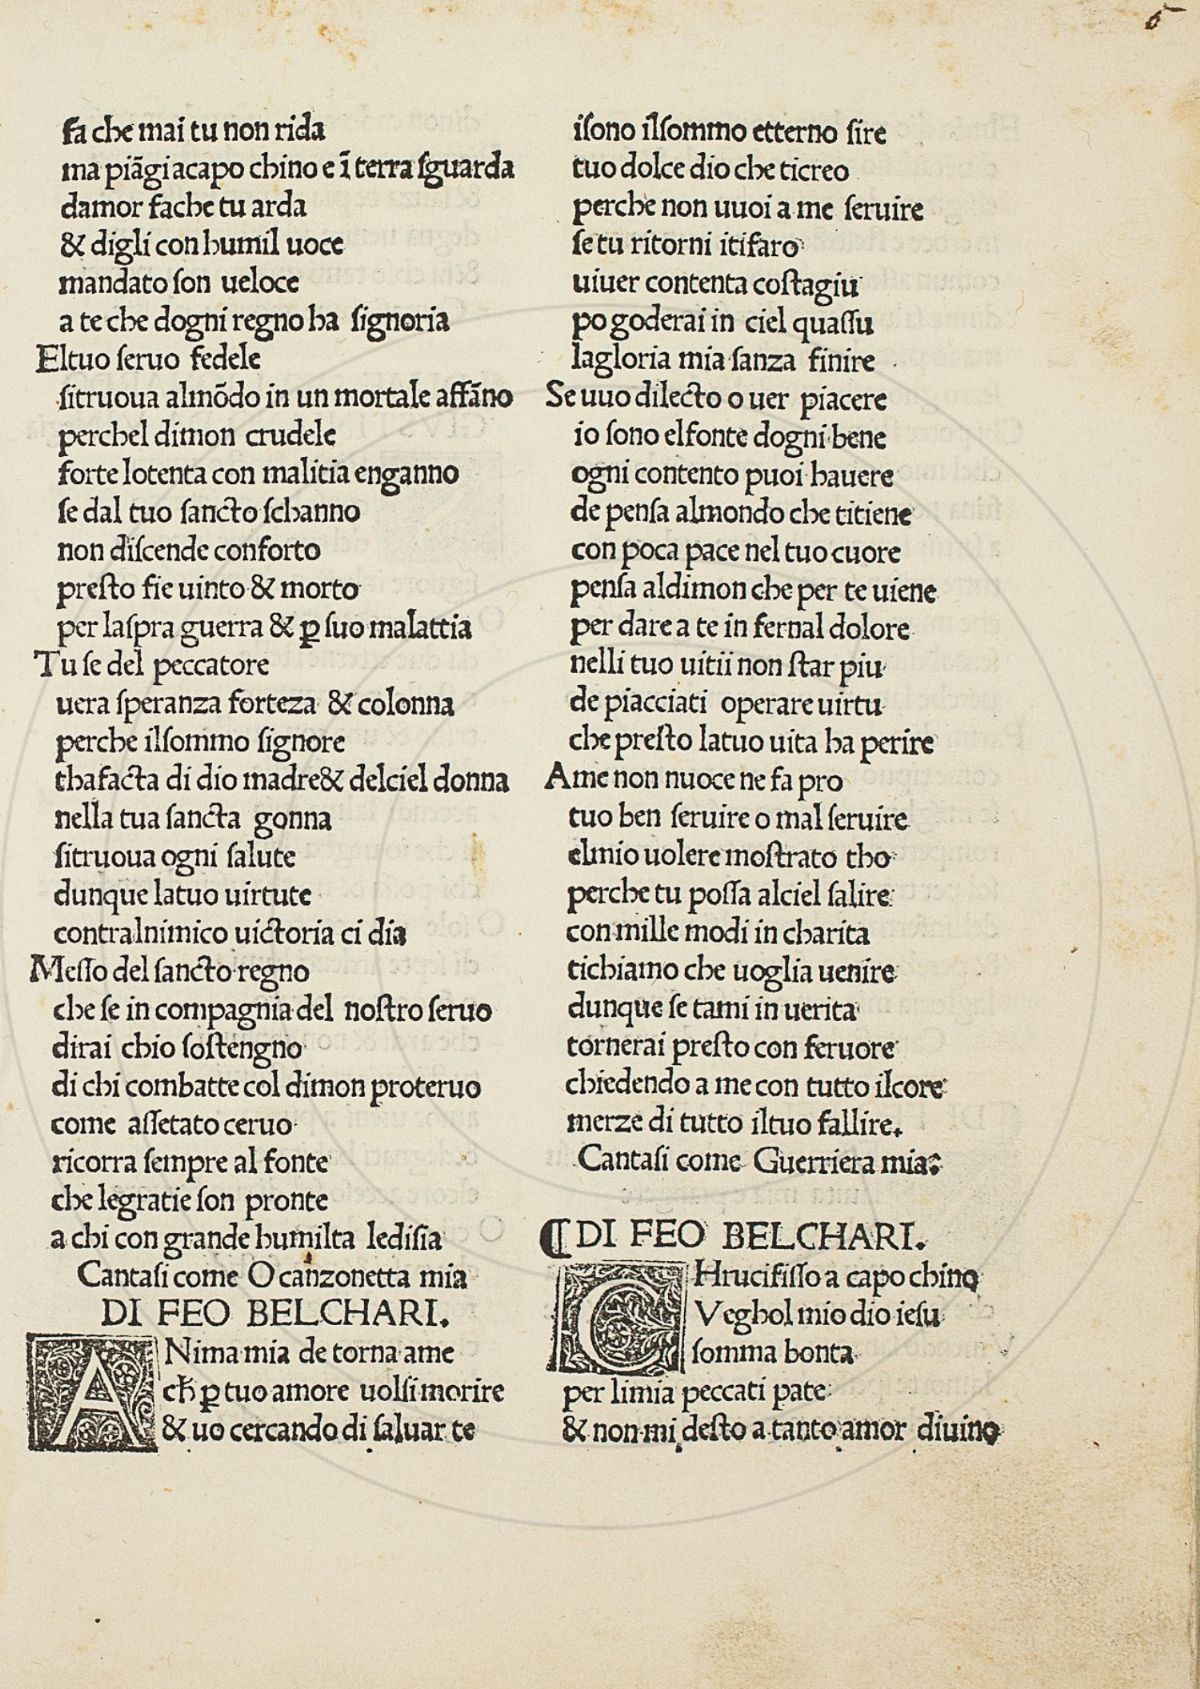 6
fa che mai tu non rida
ma piãgi acapo chino e ĩ terra ſguarda
damor fache tu arda
& digli con humil uoce
mandato ſon ueloce
a te che dogni regno ha ſignoria
Eltuo ſeruo fedele
ſitruoua almõdo in un mortale affãno
perchel dimon crudele
forte lotenta con malitia enganno
ſe dal tuo ſancto ſchanno
non diſcende conforto
preſto fie uinto & morto
per laſpra guerra & ꝑ ſuo malattia
Tu ſe del peccatore
uera ſperanza forteza & colonna
perche ilſommo ſignore
thafacta di dio madre& delciel donna
nella tua ſancta gonna
ſitruoua ogni ſalute
dunque latuo uirtute
contralnimico uictoria ci dia
Meſſo del ſancto regno
che ſe in compagnia del noſtro ſeruo
dirai chio ſoſtengno
di chi combatte col dimon proteruo
come aſſetato ceruo
ricorra ſempre al fonte
che legratie ſon pronte
a chi con grande humilta lediſia
Cantaſi come O canzonetta mia
DI FEO BELCHARI.
ANima mia de torna ame
cħ ꝑ tuo amore uolſi morire
& uo cercando di ſaluar te
iſono ilſommo etterno ſire
tuo dolce dio che ticreo
perche non uuoi a me ſeruire
ſe tu ritorni itifaro
uiuer contenta coſtagiu
po goderai in ciel quaſſu
lagloria mia ſanza finire
Se uuo dilecto o uer piacere
io ſono elfonte dogni bene
ogni contento puoi hauere
de penſa almondo che titiene
con poca pace nel tuo cuore
penſa aldimon che per te uiene
per dare a te in fernal dolore
nelli tuo uitii non ſtar piu
de piacciati operare uirtu
che preſto latuo uita ha perire
Ame non nuoce ne fa pro
tuo ben ſeruire o mal ſeruire
elmio uolere moſtrato tho
perche tu poſſa alciel ſalire
con mille modi in charita
tichiamo che uoglia uenire
dunque ſe tami in uerita
tornerai preſto con feruore
chiedendo a me con tutto ilcore
merze di tutto iltuo fallire.
Cantaſi come Guerriera mia:
¶DI FEO BELCHARI.
CHrucifiſſo a capo chino
Veghol mio dio ieſu
ſomma bonta
per limia peccati pate
& non mi deſto a tanto amor diuino